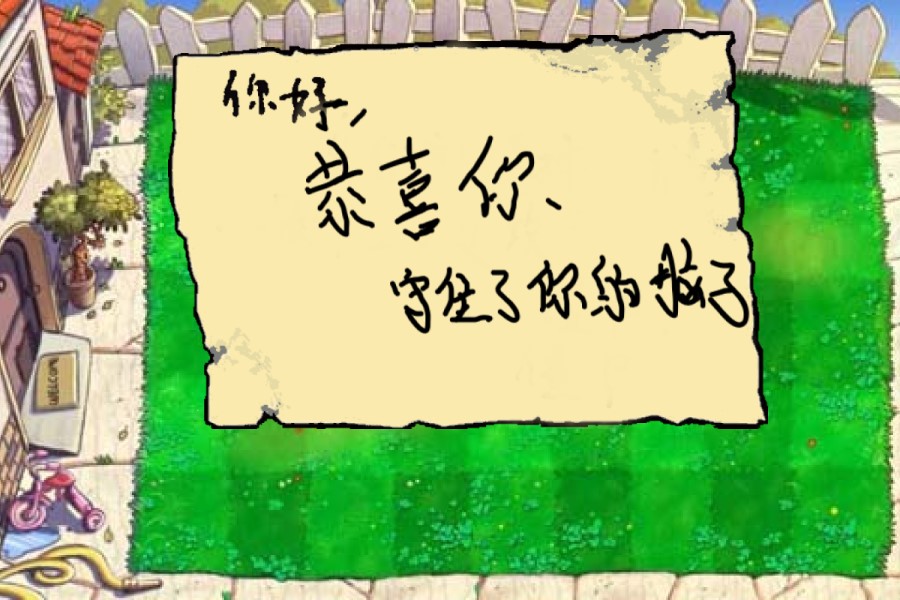 你好，
恭喜你、
守住了你的脑子
WELCOME